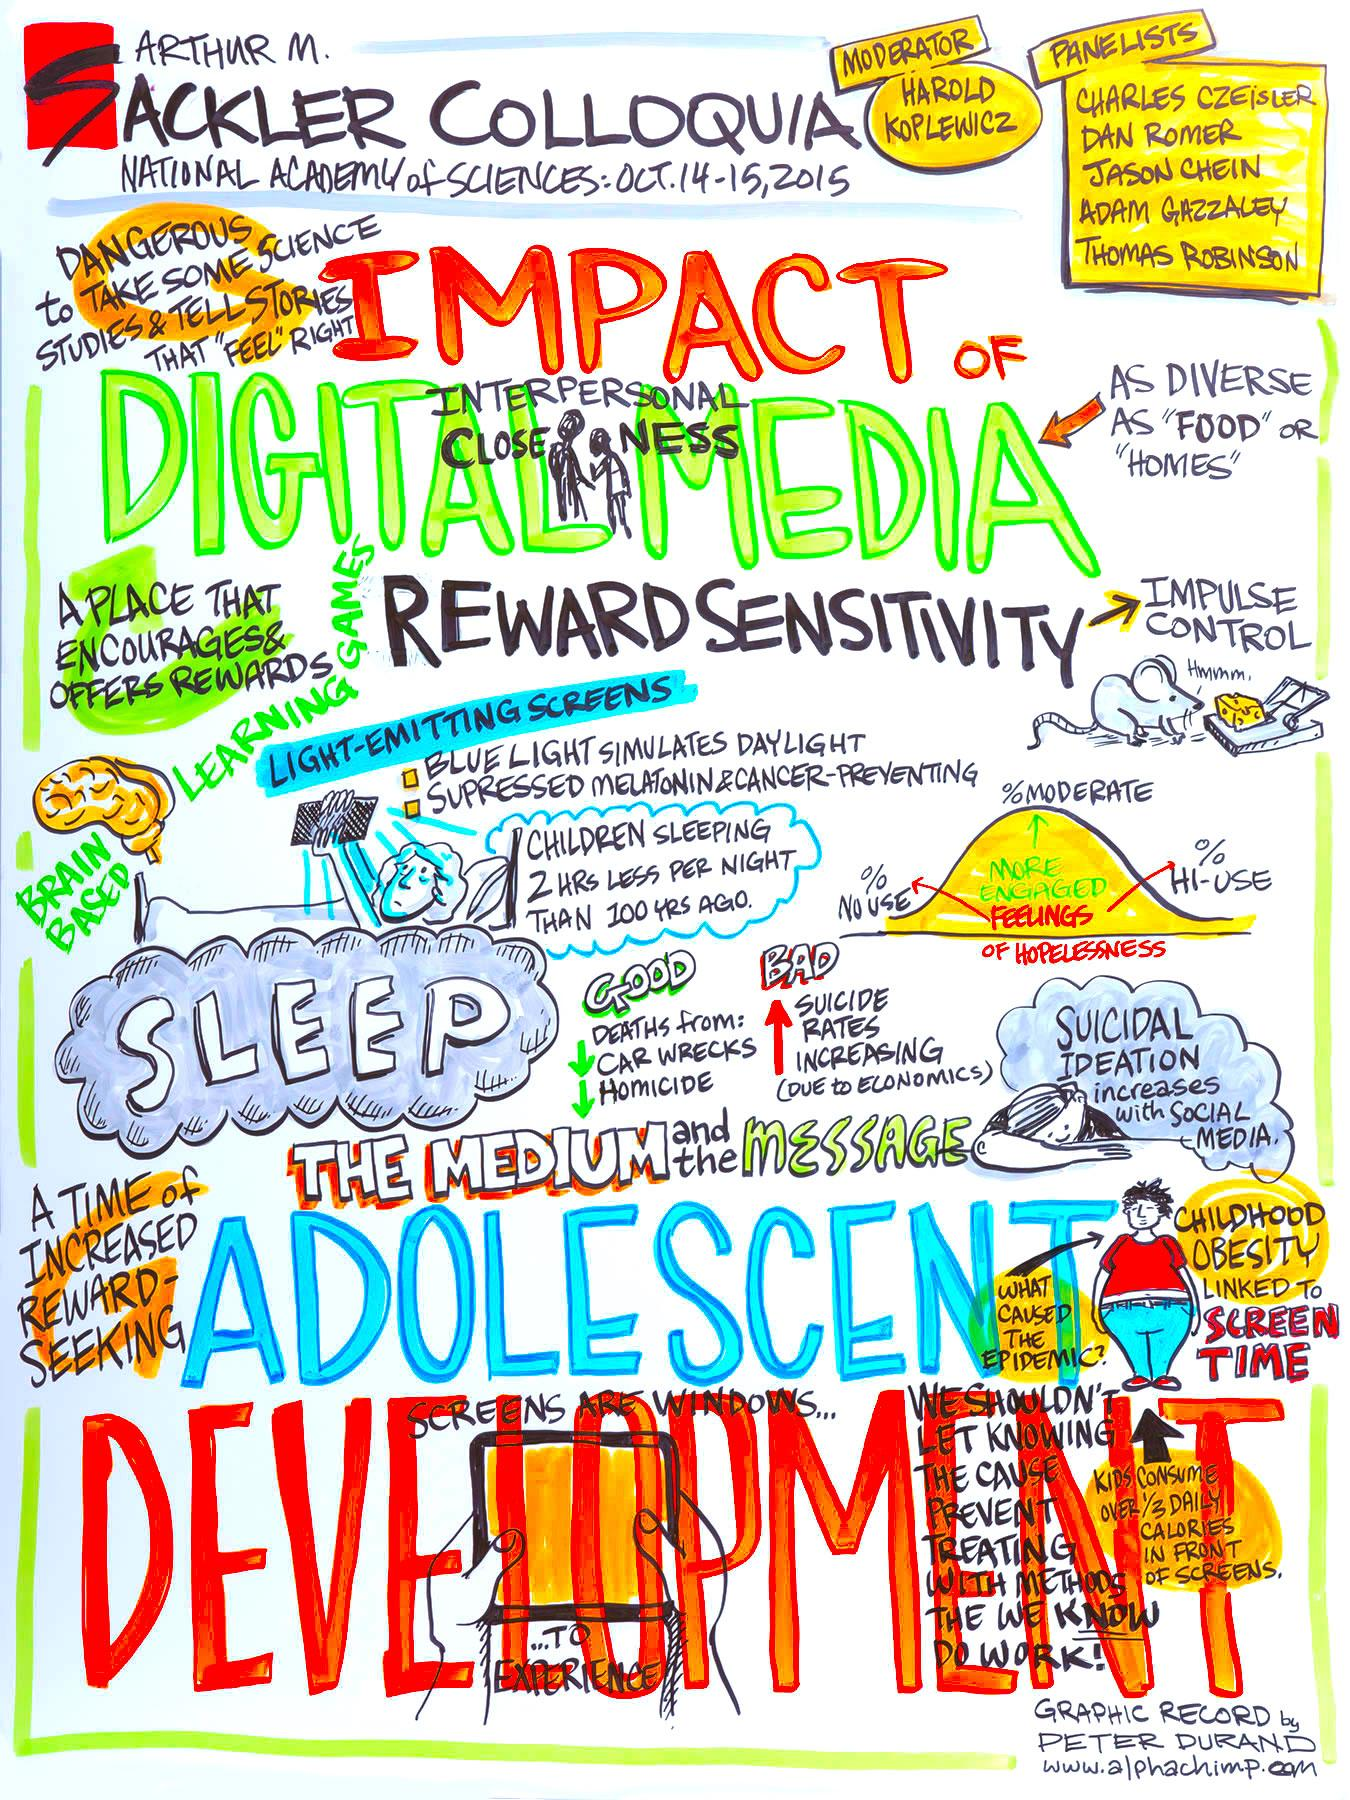 ARTHUR M.
SACKLER COLLOQUIA
NATIONAL ACADEMY of SCIENCES: OCT. 14-15, 2015
MODERATOR
HAROLD
KOPLEWICZ
PANELISTS
CHARLES CZEISLER
DAN ROMER
JASON CHEIN
ADAM GAZZALEY
THOMAS ROBINSON
DANGEROUS
to TAKE SOME SCIENCE
STUDIES & TELL STORIES
THAT "FEEL" RIGHT
IMPACT OF
DIGITAL MEDIA
INTERPERSONAL
CLOSENESS
AS DIVERSE
AS "FOOD" OR
"HOMES"
A PLACE THAT
ENCOURAGES &
OFFERS REWARDS
LEARNING GAMES
REWARD SENSITIVITY
IMPULSE
CONTROL
Hmmm.
LIGHT-EMITTING SCREENS
BLUE LIGHT SIMULATES DAYLIGHT
SUPRESSED MELATONIN & CANCER-PREVENTING
BRAIN
BASED
CHILDREN SLEEPING
2 HRS LESS PER NIGHT
THAN 100 YRS AGO.
% MODERATE
%
NO USE
MORE
ENGAGED
%
HI-USE
FEELINGS
OF HOPELESSNESS
SLEEP
GOOD
DEATHS from:
CAR WRECKS
HOMICIDE
BAD
SUICIDE
RATES
INCREASING
(DUE to ECONOMICS)
SUICIDAL
IDEATION
increases
with SOCIAL
MEDIA.
THE MEDIUM and the MESSAGE
A TIME of
INCREASED
REWARD-
SEEKING
ADOLESCENT
WHAT
CAUSED
THE
EPIDEMIC?
CHILDHOOD
OBESITY
LINKED TO
SCREEN
TIME
DEVELOPMENT
SCREENS ARE WINDOWS...
...TO
EXPERIENCE
WE SHOULDN'T
LET KNOWING
THE CAUSE
PREVENT
TREATING
WITH METHODS
THE WE KNOW
DO WORK!
KIDS CONSUME
OVER 1/3 DAILY
CALORIES
IN FRONT
OF SCREENS.
GRAPHIC RECORD by
PETER DURAND
www.alphachimp.com